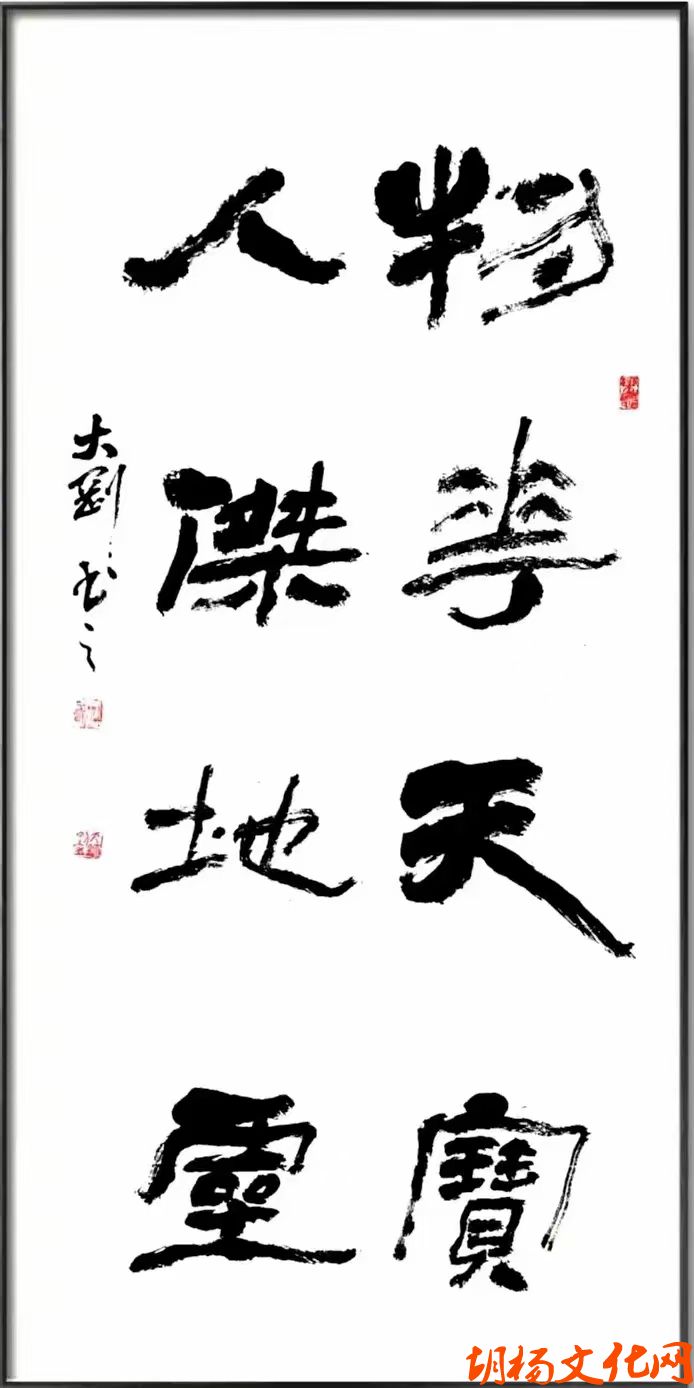 物華天寶
人傑地靈
大劉书之
胡杨文化网